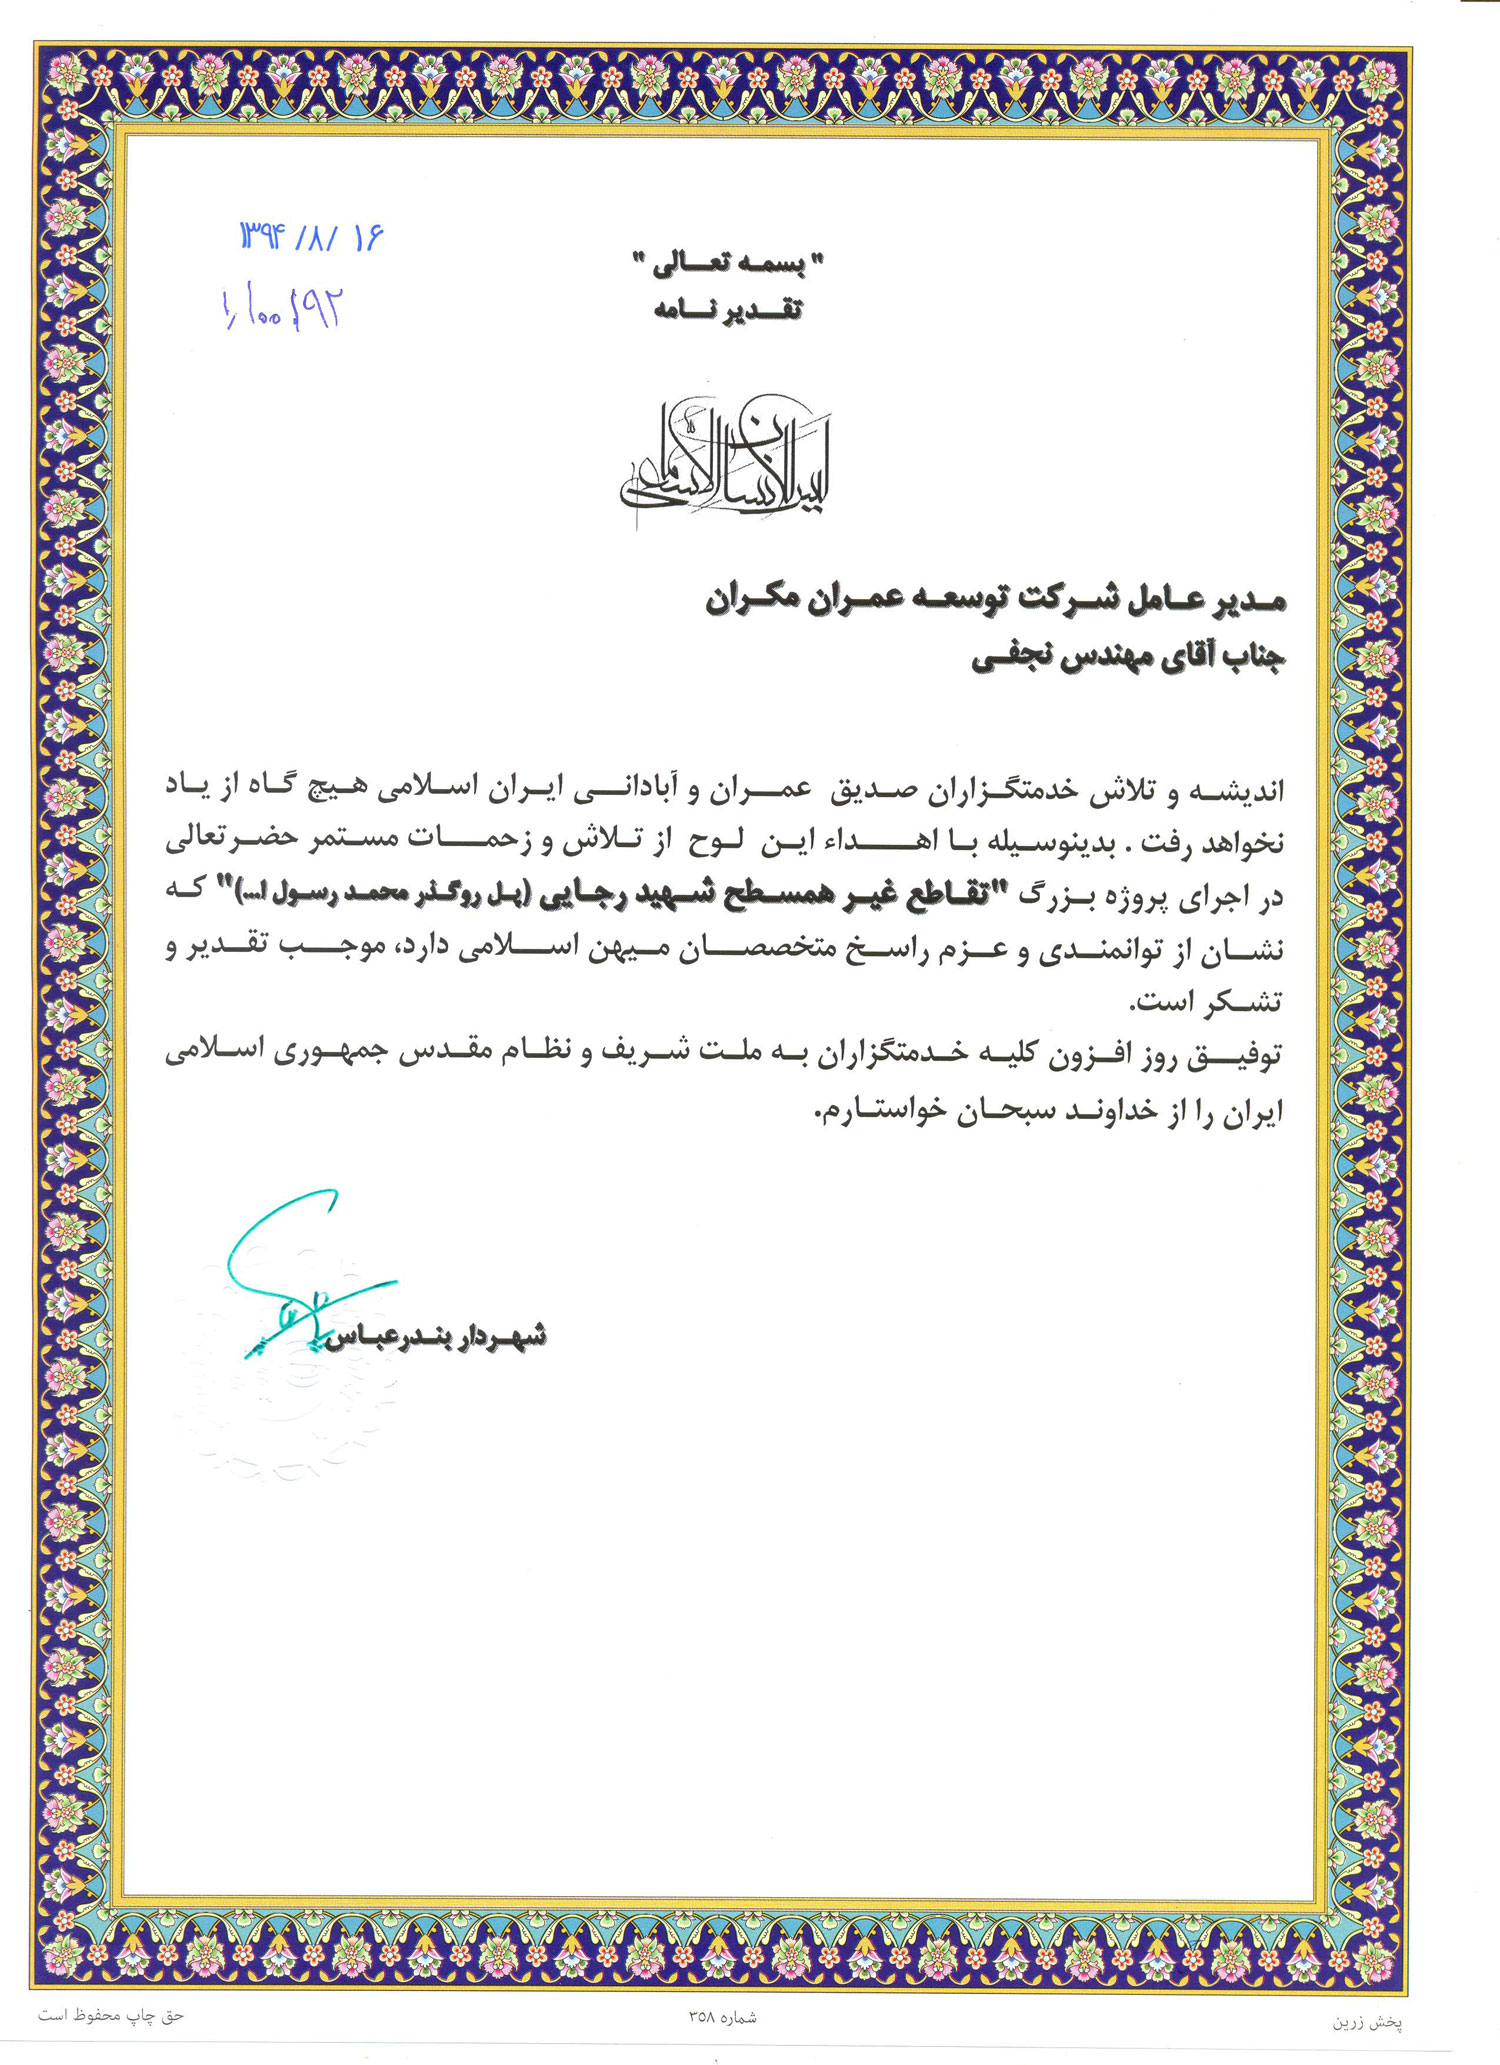 ۱۳۹۴/۸/۱۶
" بسمه تعالی "
تقدیر نامه
لیس للانسان الا ما سعی
مدیر عامل شرکت توسعه عمران مکران
جناب آقای مهندس نجفی
اندیشه و تلاش خدمتگزاران صدیق عمران و آبادانی ایران اسلامی هیچ گاه از یاد
نخواهد رفت . بدینوسیله با اهداء این لوح از تلاش و زحمات مستمر حضرتعالی
در اجرای پروژه بزرگ "تقاطع غیر همسطح شهید رجایی (پل روگذر محمد رسول ا...)" که
نشان از توانمندی و عزم راسخ متخصصان میهن اسلامی دارد، موجب تقدیر و
تشکر است.
توفیق روز افزون کلیه خدمتگزاران به ملت شریف و نظام مقدس جمهوری اسلامی
ایران را از خداوند سبحان خواستارم.
شهردار بندرعباس
پخش زرین
شماره ۳۵۸
حق چاپ محفوظ است